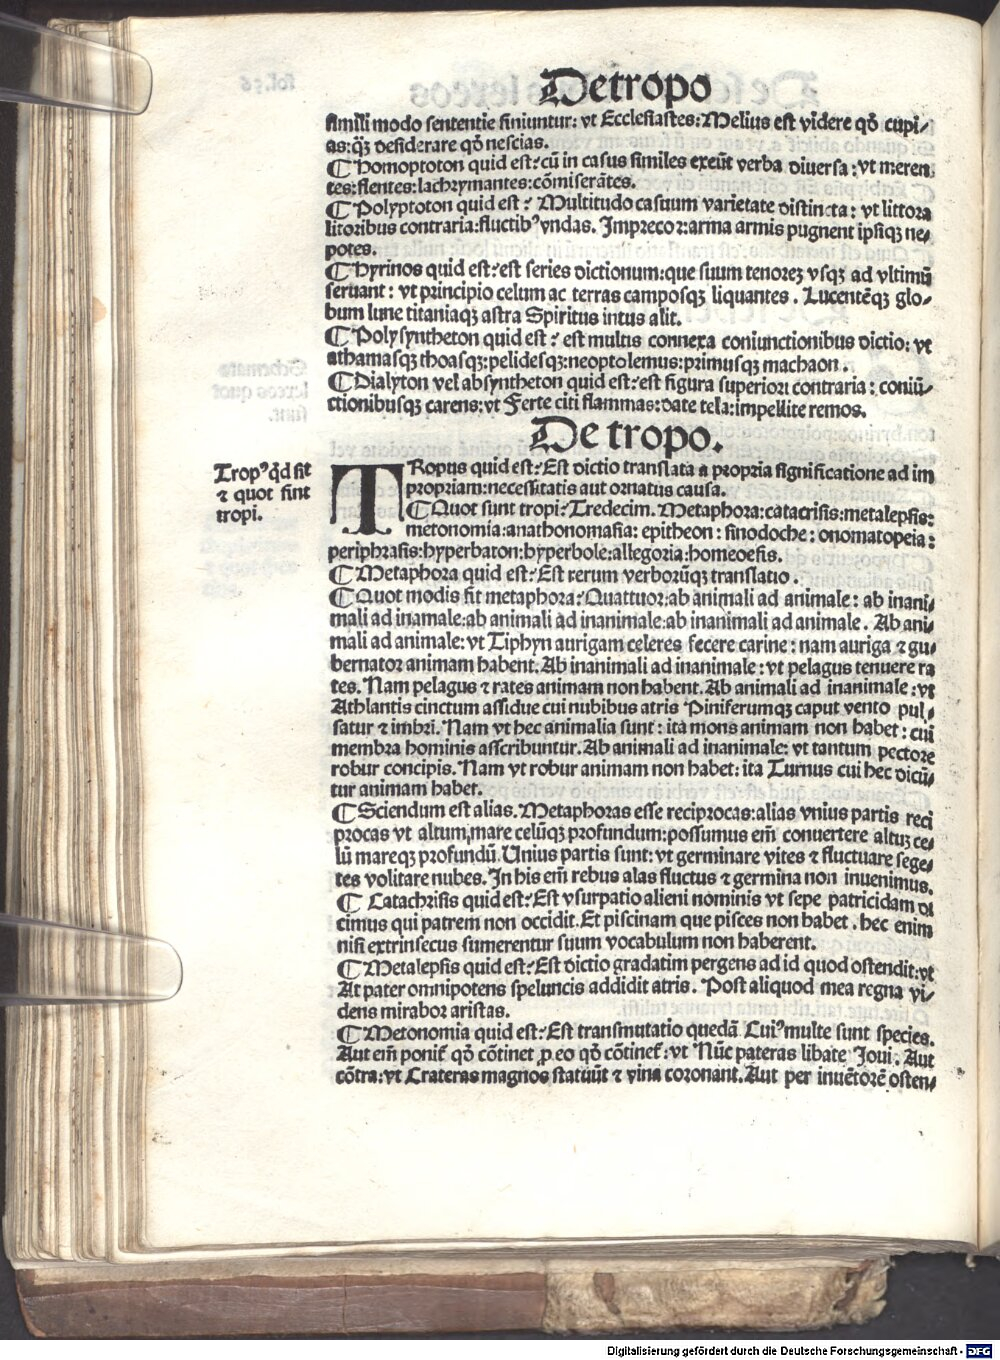 De tropo
simili modo sententie finiuntur: vt Ecclesiastes: Melius est videre qđ cupi⸗
as: qꝫ desiderare qđ nescias.
¶ Homoptoton quid est: cū in casus similes exeūt verba diuersa: vt meren
tes: flentes: lachrymantes: cōmiserātes.
¶ Polyptoton quid est: Multitudo casuum varietate distincta: vt littora
litoribus contraria: fluctibꝰ vndas. Imprecor: arma armis pugnent ipsiqꝫ ne⸗
potes.
¶ Hyrinos quid est: est series dictionum: que suum tenoreꝫ vsqꝫ ad vltimū
seruant: vt principio celum ac terras camposqꝫ liquantes. Lucentēqꝫ glo⸗
bum lune titaniaqꝫ astra Spiritus intus alit.
¶ Polysyntheton quid est: est multis connexa coniunctionibus dictio: vt
athamasqꝫ thoasqꝫ: pelidesqꝫ: neoptolemus: primusqꝫ machaon.
¶ Dialyton vel absyntheton quid est: est figura superiori contraria: coniū⸗
ctionibusqꝫ carens: vt Ferte citi flammas: date tela: impellite remos.
De tropo.
Tropꝰ qđ sit
⁊ quot sint
tropi.
TRopus quid est: Est dictio translata a propria significatione ad im
propriam: necessitatis aut ornatus causa.
¶ Quot sunt tropi: Tredecim. Metaphora: catacrisis: metalepsis:
metonomia: anathonomasia: epitheon: sinodoche: onomatopeia:
periphrasis: hyperbaton: hyperbole: allegoria: homoeosis.
¶ Metaphora quid est: Est rerum verborūqꝫ translatio.
¶ Quot modis fit metaphora: Quattuor: ab animali ad animale: ab inani⸗
mali ad inamale: ab animali ad inanimale: ab inanimali ad animale. Ab ani⸗
mali ad animale: vt Tiphyn aurigam celeres fecere carine: nam auriga ⁊ gu⸗
bernator animam habent. Ab inanimali ad inanimale: vt pelagus tenuere ra
tes. Nam pelagus ⁊ rates animam non habent. Ab animali ad inanimale: vt
Athlantis cinctum assidue cui nubibus atris Piniferumqꝫ caput vento pul⸗
satur ⁊ imbri. Nam vt hec animalia sunt: ita mons animam non habet: cui
membra hominis asscribuntur. Ab animali ad inanimale: vt tantum pectore
robur concipis. Nam vt robur animam non habet: ita Turnus cui hec dicū⸗
tur animam habet.
¶ Sciendum est alias. Metaphoras esse reciprocas: alias vnius partis reci
procas vt altum, mare celūqꝫ profundum: possumus em̄ conuertere altuꝫ ce⸗
lū mareqꝫ profundū. Unius partis sunt: vt germinare vites ⁊ fluctuare sege⸗
tes volitare nubes. In his em̄ rebus alas fluctus ⁊ germina non inuenimus.
¶ Catachrisis quid est: Est vsurpatio alieni nominis vt sepe patricidam di
cimus qui patrem non occidit. Et piscinam que pisces non habet. hec enim
nisi extrinsecus sumerentur suum vocabulum non haberent.
¶ Metalepsis quid est: Est dictio gradatim pergens ad id quod ostendit: vt
At pater omnipotens speluncis addidit atris. Post aliquod mea regna vi⸗
dens mirabor aristas.
¶ Metonomia quid est: Est transmutatio quedā. Cuiꝰ multe sunt species.
Aut em̄ ponit᷑ qđ cōtinet ꝓ eo qđ cōtinet᷑: vt Nūc pateras libate Joui. Aut
cōtra: vt Crateras magnos statuūt ⁊ vina coronant. Aut per inuētorē osten⸗
Digitalisierung gefördert durch die Deutsche Forschungsgemeinschaft - DFG